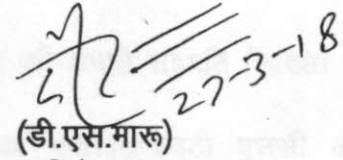 27-3-18
(डी.एस.मारू)